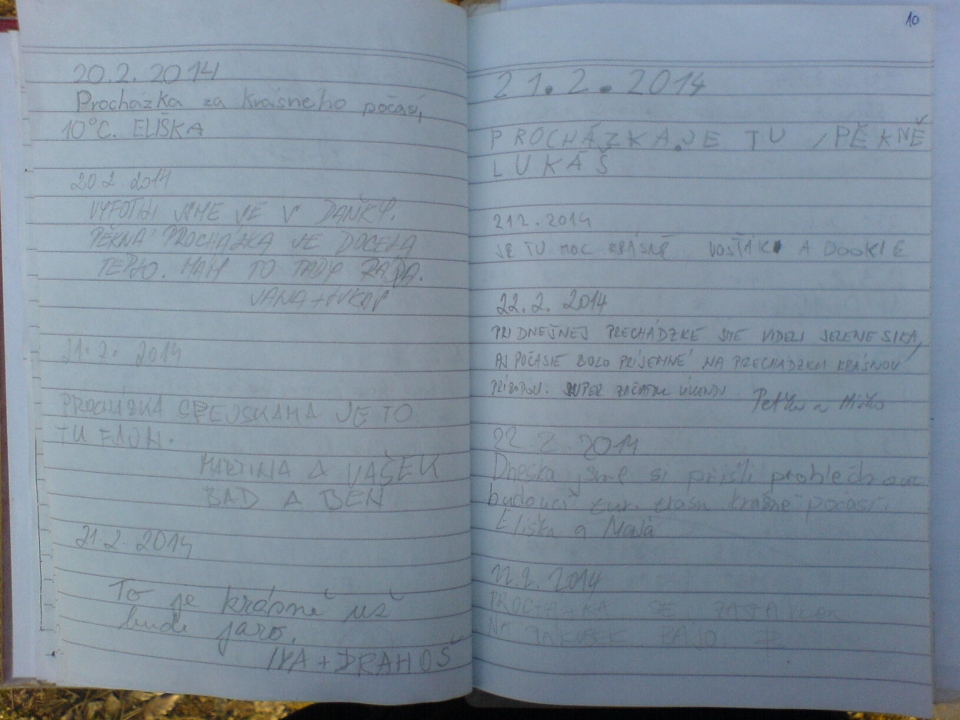 20.2. 2014
Procházka za krásného počasí,
10°C. ELIŠKA
20.2 2014
VYFOTILI JSME SE V
PĚKNÁ PROCHÁZKA JE DOCELA
TEPLO. MÁM TO TADY RÁDA.
JANA +
21.2. 2014
PROCHÁZKA S PEJSKAMA JE TO
TU FAJN.
MARTINA A VAŠEK
BAD A BEN
21.2. 2014
To je krásné už
bude jaro.
IVA + DRAHOŠ
10
21.2.2014
PROCHÁZKA.JE TU PĚKNĚ
LUKÁŠ
212.2014
JE TU MOC KRÁSNĚ A DOOKIE
22.2. 2014
PRI DNEŠNEJ PRECHÁDZKE SME VIDELI JELENE SIKA,
AJ POČASIE BOLO PRÍJEMNÉ NA PRECHÁDZKU KRÁSNOU
PRÍRODOU. SUPER ZAČÁTOK VÍKENDU
22.2.2014
Dneska jsme si přišli prohlédnout
budoucí krásné počasí
Eliška a
22.2.2014
PROCHÁZKA SE
NA